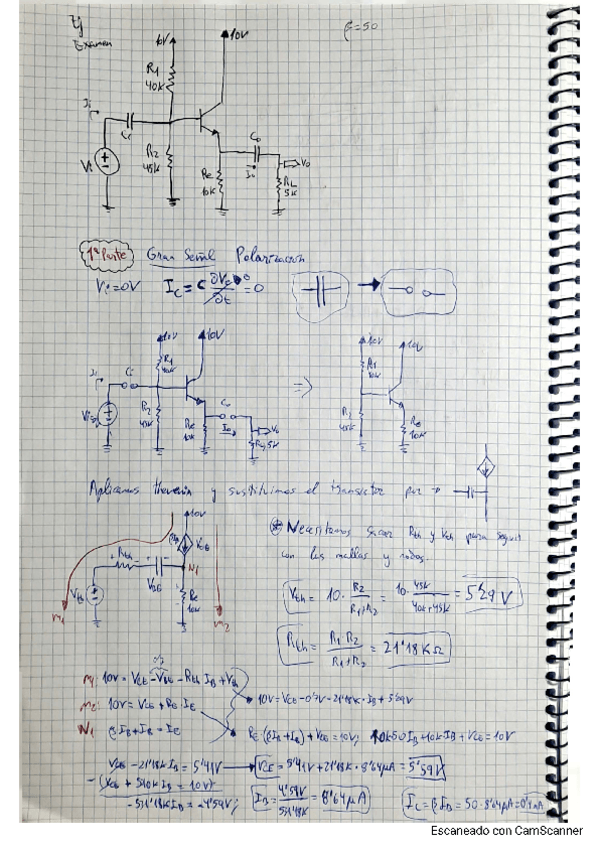 Ej
Examen
β=50
10V
10V
R1
40K
Ii
Ci
Vi
R2
45K
Re
10K
Co
Io
Vo
RL
5K
1ª Parte Gran Señal Polarización
Vi=0V IC = C ∂Vc/∂t = 0
10V
R1
10V
Ci
R2
45K
Re
10K
Co
Io
Vo
⇒
10V
10V
R1
45K
Re
10K
Aplicamos thevenin y sustituimos el transistor por →
10V
Rth
Vth
N1
Re
10K
m1
m2
* Necesitamos sacar Rth y Vth para seguir
con las mallas y nodos.
Vth = 10· R2/(R1+R2) = 10·45K/(40K+45K) = 5'29V
Rth = R1·R2/(R1+R2) = 21'18KΩ
m1: 10V = VCE - VBE - Rth IB + Vth
10V = VCE - 0'7V - 21'18K·IB + 5'29V
m2: 10V = VCE + RE IE
N1: βIB + IB = IE
RE(βIB+IB) + VCE = 10V; 10K·50IB + 10K·IB + VCE = 10V
VCE - 21'18K IB = 5'41V → VCE = 5'41V + 21'18K·8'64μA = 5'59V
-(VCE + 510K IB = 10V)
-531'18K IB = -4'59V; IB = 4'59V/531'18K = 8'64μA
IC = β IB = 50·8'64μA = 0'4mA
Escaneado con CamScanner